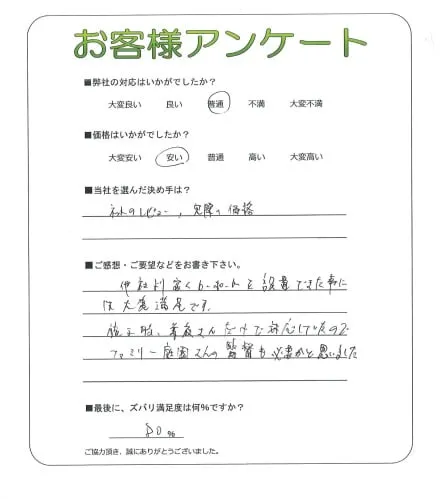 お客様アンケート
■弊社の対応はいかがでしたか？
大変良い 良い 普通 不満 大変不満
■価格はいかがでしたか？
大変安い 安い 普通 高い 大変高い
■当社を選んだ決め手は？
ネットのレビュー、実際の価格
■ご感想・ご要望などをお書き下さい。
他社より安くカーポートを設置できた事に
は大変満足です。
施工時、業者さんだけで対応していたので
ファミリー庭園さんの監督も必要かと思いました
■最後に、ズバリ満足度は何%ですか？
80%
ご協力頂き、誠にありがとうございました。